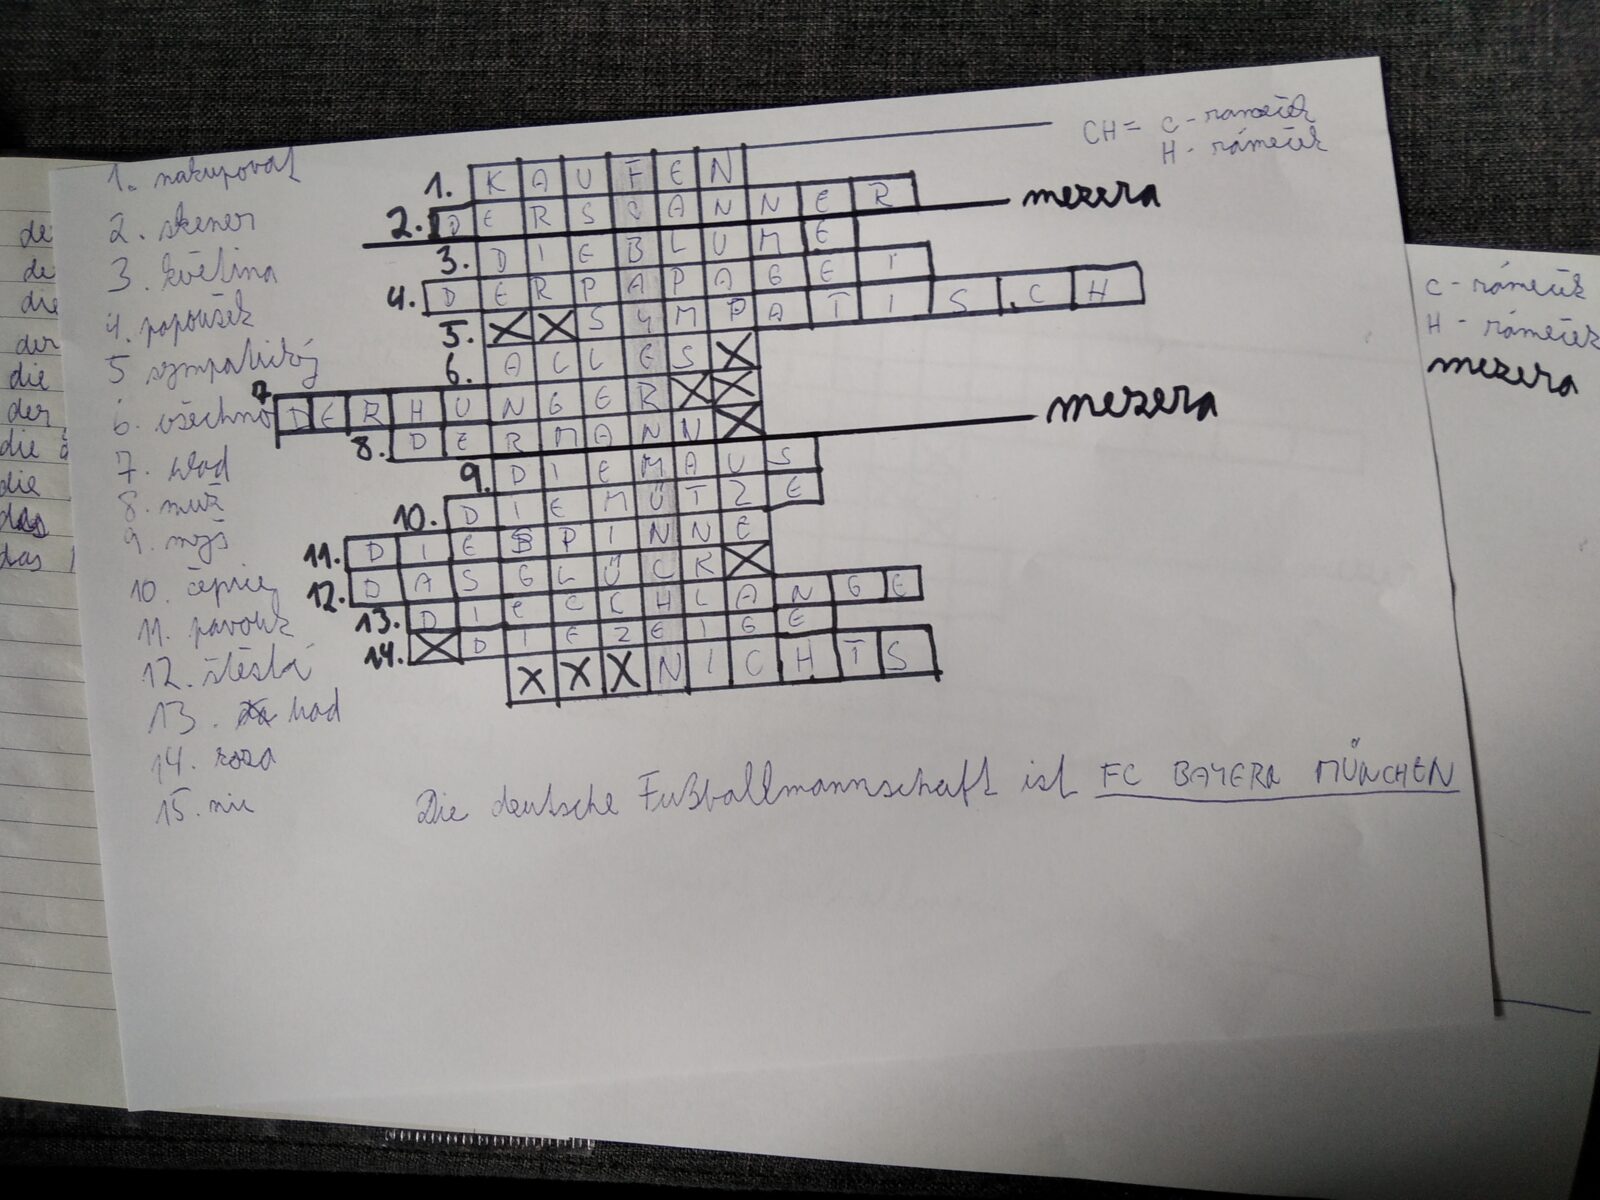 CH = C - rámeček
H - rámeček
1. nakupovat
2. skener
3. květina
4. papoušek
5 sympatický
6. všechno
7. hlad
8. muž
9. myš
10. čepice
11. pavouk
12. štěstí
13. had
14. koza
15. nic
1. KAUFEN
2. DERSCANNER
mezera
3. DIEBLUME
4. DERPAPAGEI
5. XXSYMPATISCH
6. ALLESX
7 DERHUNGERXX
8. DERMANNX
mezera
9. DIEMAUS
10. DIEMÜTZE
11. DIESPINNE
12. DASGLÜCKX
13. DIECCHLANGE
14. XDIEZEIGE
XXXNICHTS
Die deutsche Fußballmannschaft ist FC BAYERN MÜNCHEN
C - rámeček
H - rámeček
mezera
de
de
die
der
die
der
die
die
das
das